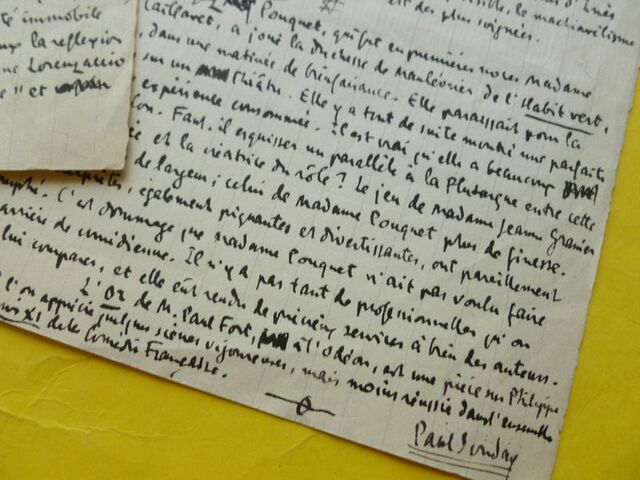 té immobile
aux la réflexion
Lorenzaccio
e" et
est des plus soignées.
possible, le machiavélisme
Pouquet, qui fut en premières noces madame
Caillavet, a joué la duchesse de Maulévrier de l'Habit vert,
dans une matinée de bienfaisance. Elle paraissait pour la
sur un théâtre. Elle y a tout de suite montré une parfaite
expérience consommée. Il est vrai qu'elle a beaucoup
Faut-il esquisser un parallèle à la Plutarque entre cette
et la créatrice du rôle ? Le jeu de madame Jeanne Granier
de largeur ; celui de madame Pouquet plus de finesse.
interprètes, également piquantes et divertissantes, ont pareillement
C'est dommage que madame Pouquet n'ait pas voulu faire
carrière de comédienne. Il n'y a pas tant de professionnelles qu'on
lui comparer, et elle eût rendu de précieux services à bien des auteurs.
L'Or de M. Paul Fort, à l'Odéon, est une pièce sur Philippe
l'on apprécie quelques scènes vigoureuses, mais moins réussie dans l'ensemble
XI de la Comédie Française.
Paul Souday